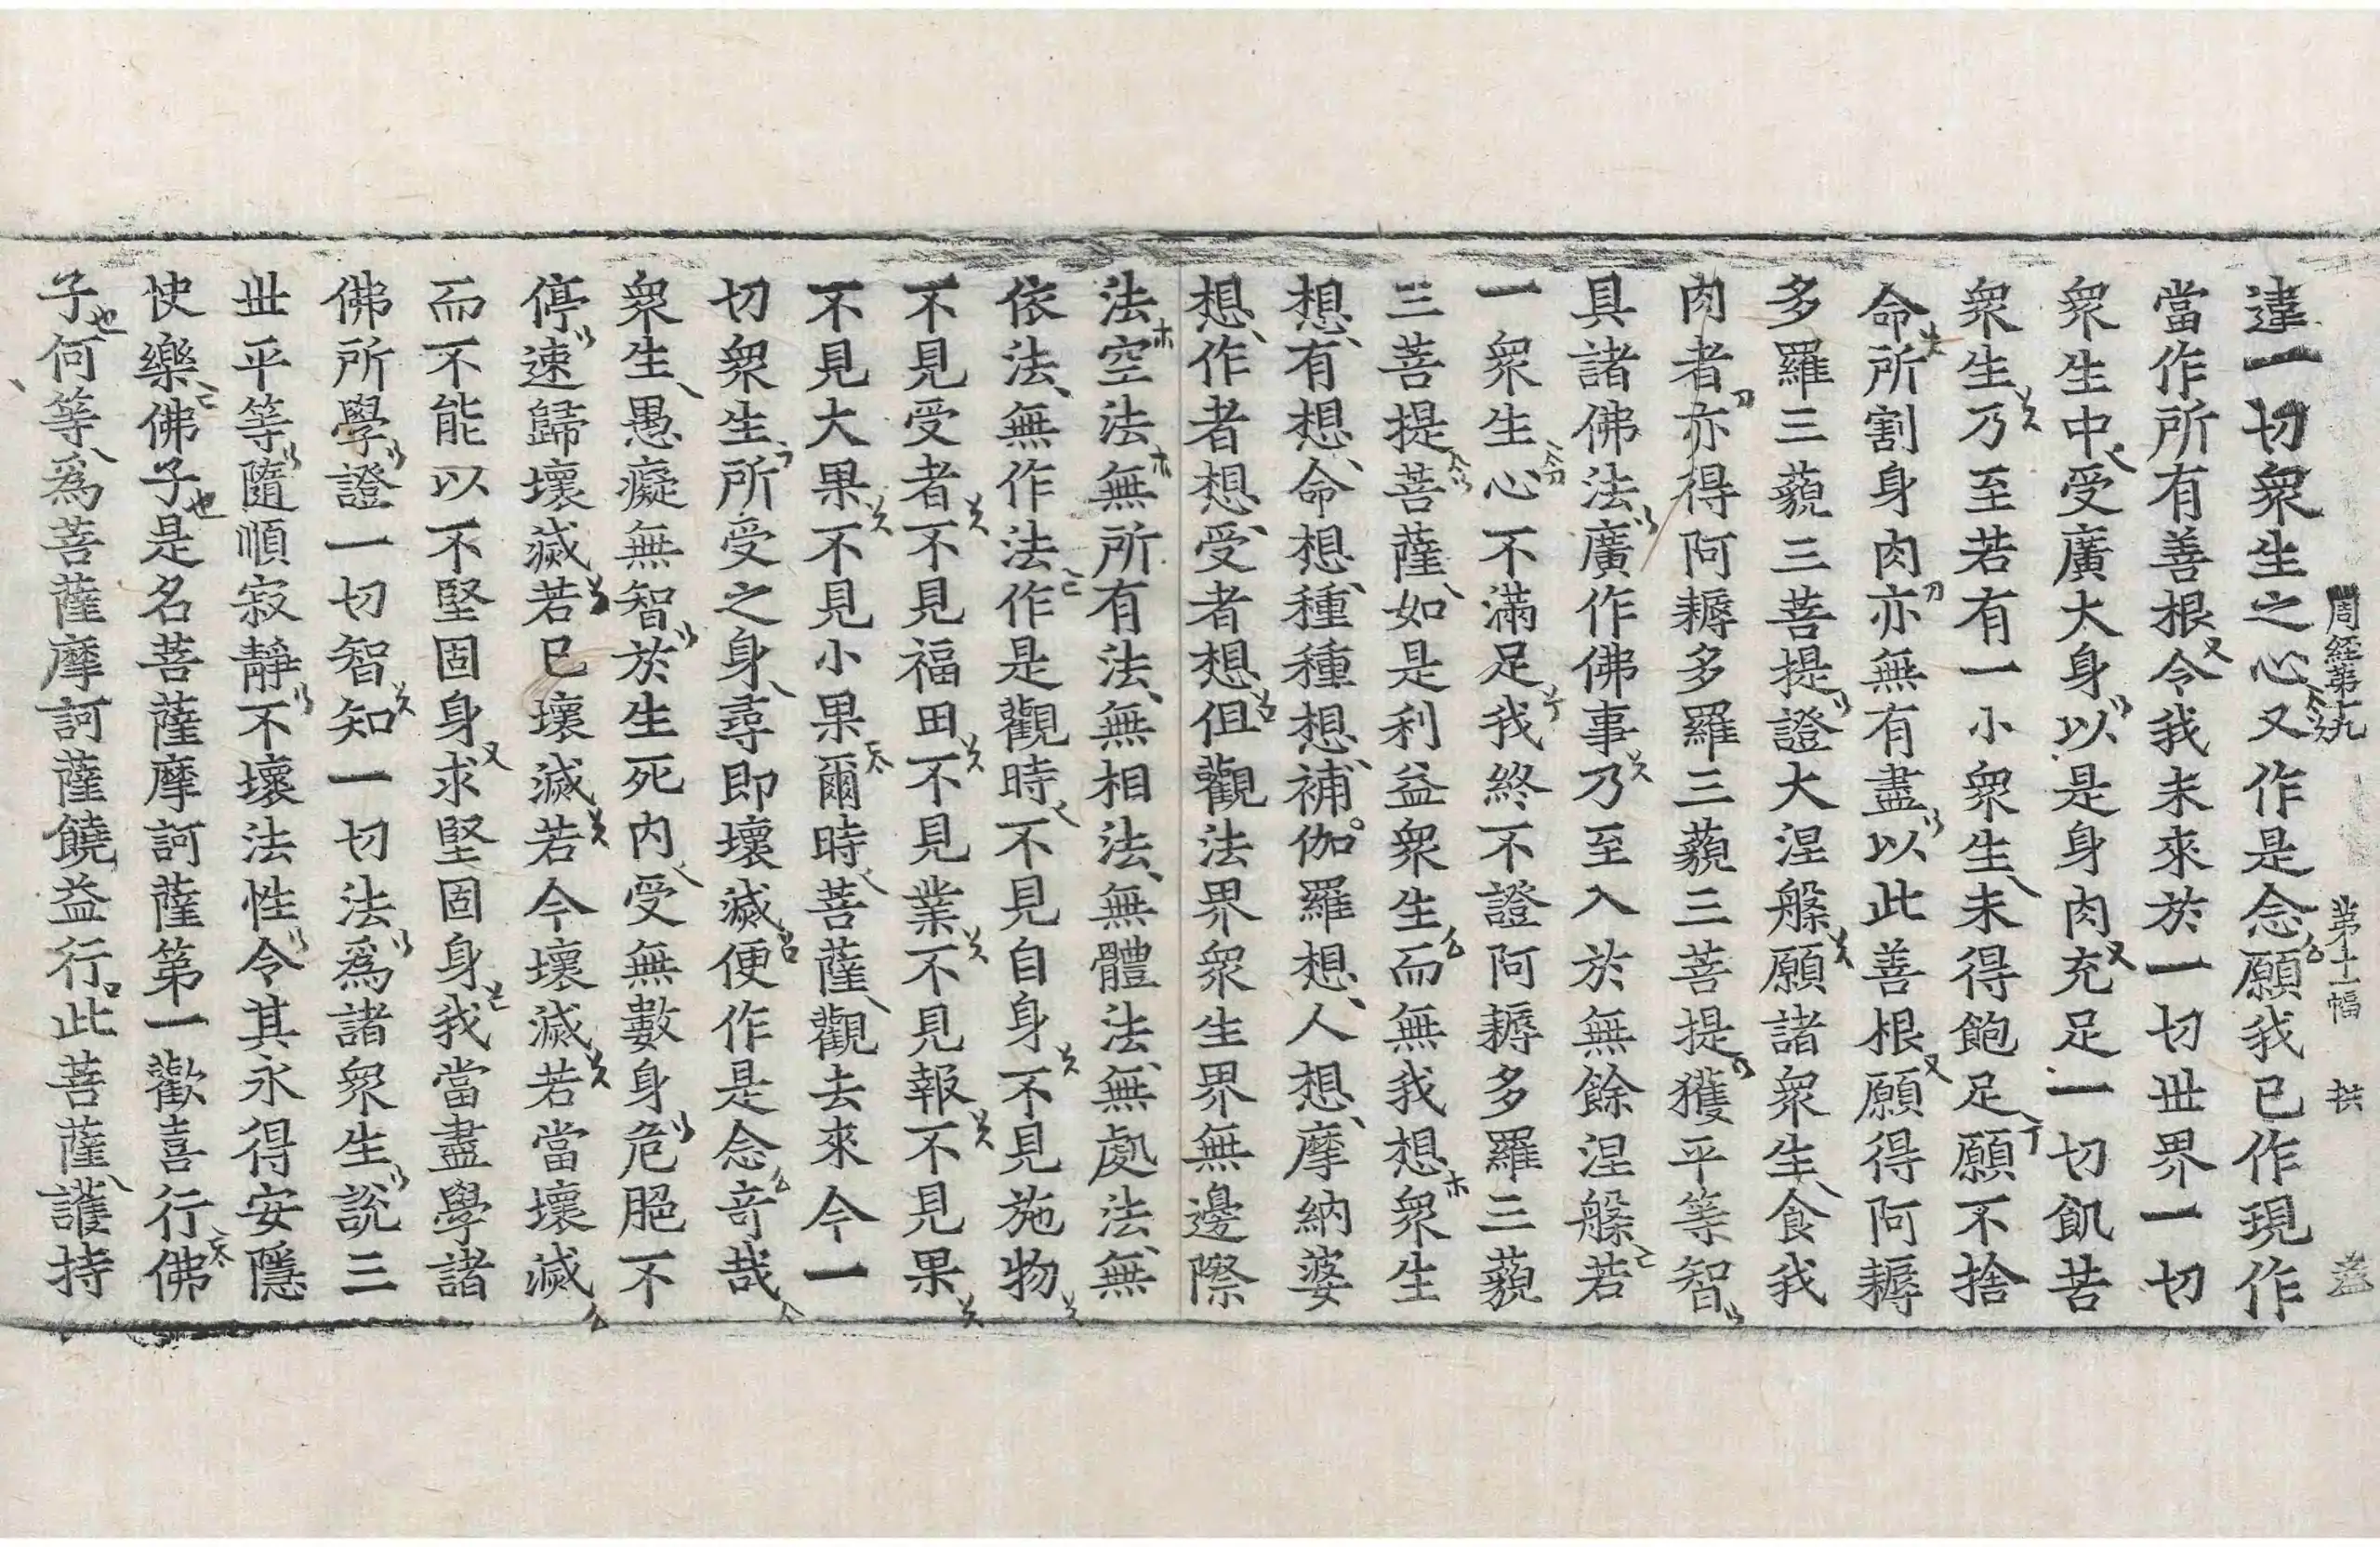 周経第十九 第十二幅 拱
違一切衆生之心又作是念願我已作現作
當作所有善根令我未來於一切世界一切
衆生中受廣大身以是身肉充足一切飢苦
衆生乃至若有一小衆生未得飽足願不捨
命所割身肉亦無有盡以此善根願得阿耨
多羅三藐三菩提證大涅槃願諸衆生食我
肉者亦得阿耨多羅三藐三菩提獲平等智
具諸佛法廣作佛事乃至入於無餘涅槃若
一衆生心不滿足我終不證阿耨多羅三藐
三菩提菩薩如是利益衆生而無我想衆生
想有想命想種種想補伽羅想人想摩納婆
想作者想受者想但觀法界衆生界無邊際
法空法無所有法無相法無體法無處法無
依法無作法作是觀時不見自身不見施物
不見受者不見福田不見業不見報不見果
不見大果不見小果爾時菩薩觀去來今一
切衆生所受之身尋即壞滅便作是念奇哉
衆生愚癡無智於生死内受無數身危脆不
停速歸壞滅若已壞滅若今壞滅若當壞滅
而不能以不堅固身求堅固身我當盡學諸
佛所學證一切智知一切法爲諸衆生說三
世平等隨順寂靜不壞法性令其永得安隱
快樂佛子是名菩薩摩訶薩第一歡喜行佛
子何等爲菩薩摩訶薩饒益行此菩薩護持